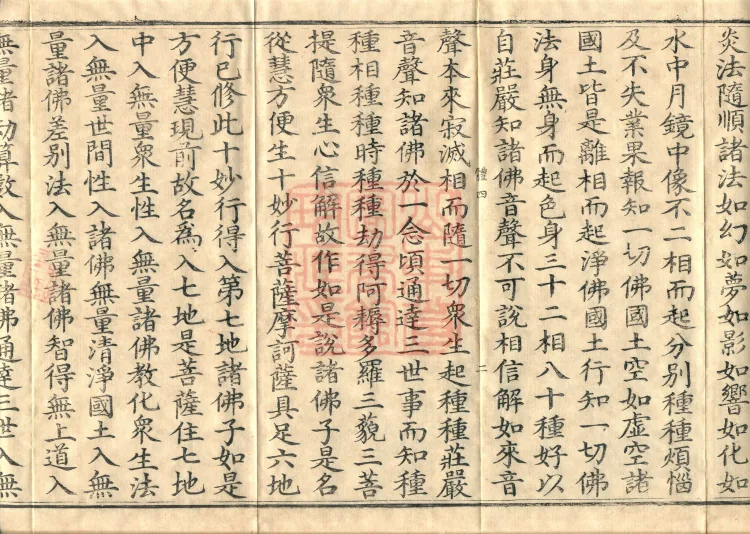 炎法隨順諸法如幻如夢如影如響如化如
水中月鏡中像不二相而起分别種種煩惱
及不失業果報知一切佛國土空如虛空諸
國土皆是離相而起淨佛國土行知一切佛
法身無身而起色身三十二相八十種好以
自莊嚴知諸佛音聲不可說相信解如來音
體四
二
聲本來寂滅相而隨一切衆生起種種莊嚴
音聲知諸佛於一念頃通達三世事而知種
種相種種時種種劫得阿耨多羅三藐三菩
提隨衆生心信解故作如是說諸佛子是名
從慧方便生十妙行菩薩摩訶薩具足六地
行已修此十妙行得入第七地諸佛子如是
方便慧現前故名為入七地是菩薩住七地
中入無量衆生性入無量諸佛教化衆生法
入無量世間性入諸佛無量清淨國土入無
量諸佛差别法入無量諸佛智得無上道入
無量諸劫算數入無量諸佛通達三世入無